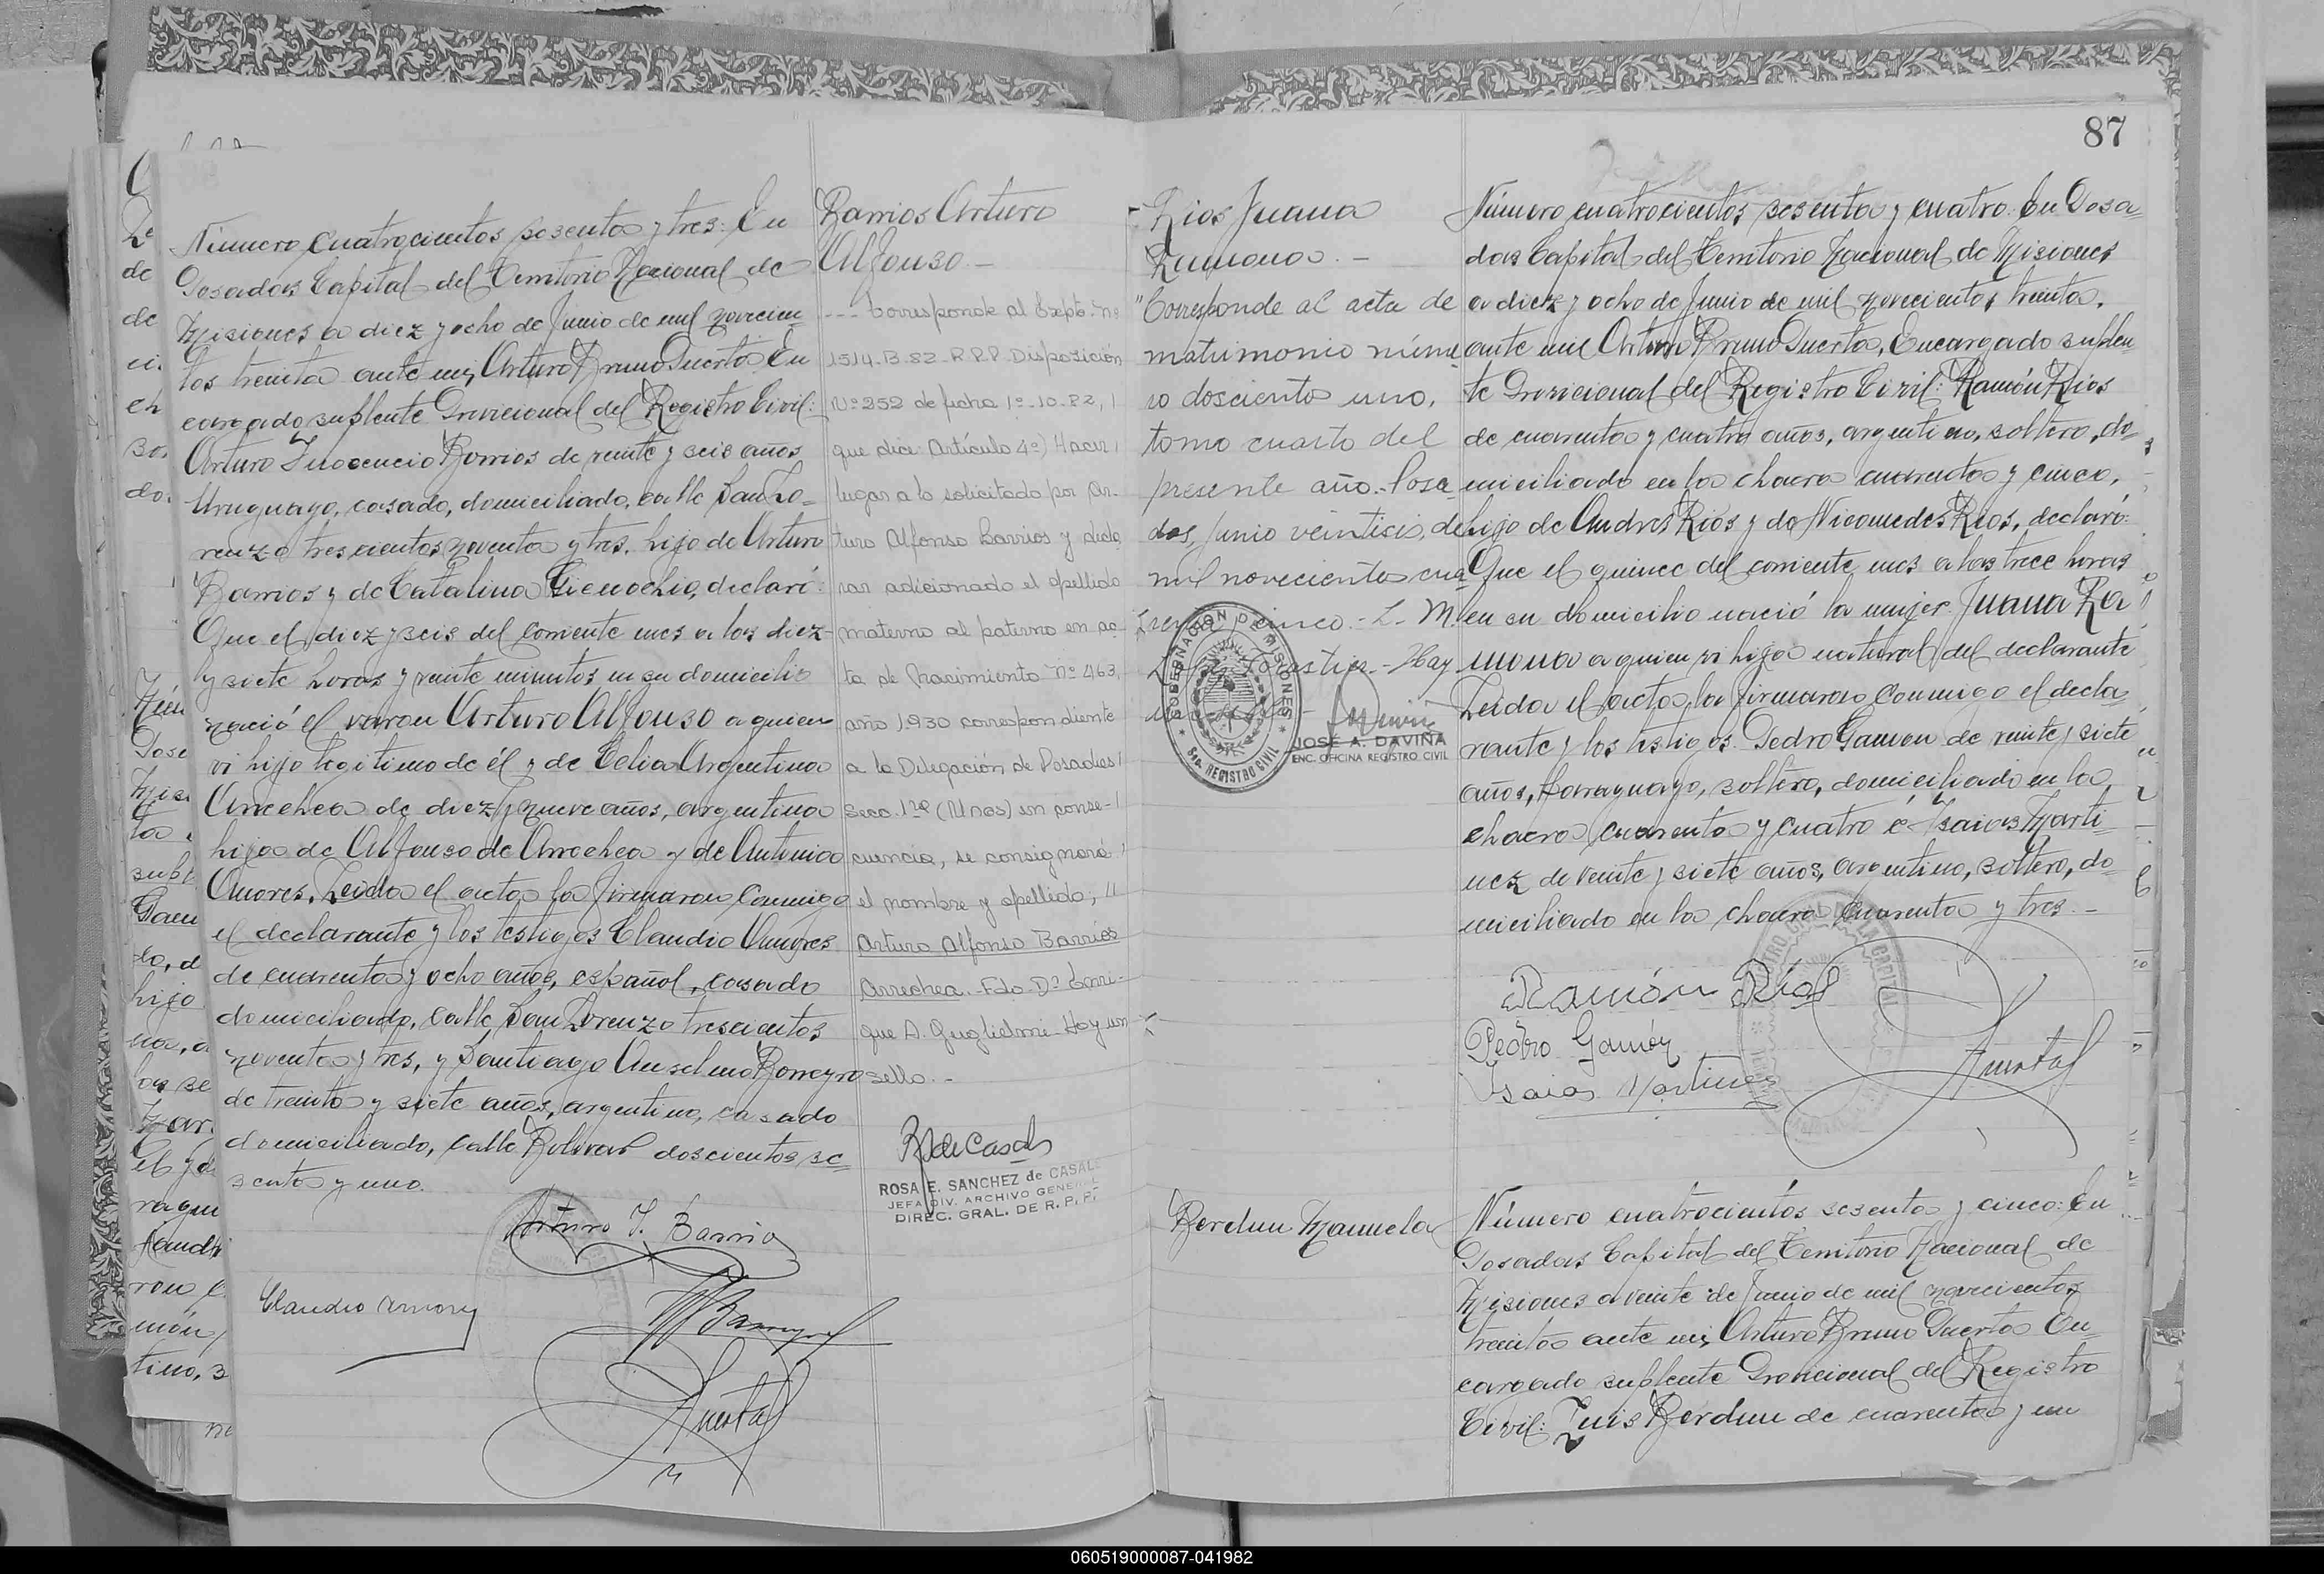 Número cuatrocientos sesenta y tres: En
Posadas Capital del Territorio Nacional de
Misiones a diez y ocho de Junio de mil novecien-
tos treinta ante mi, Arturo Bruno Puerta, En
cargado suplente Provicional del Registro Civil:
Arturo Inocencio Barrios de veinte y seis años
Uruguayo, casado, domiciliado, calle San Lo-
renzo trescientos noventa y tres, hijo de Arturo
Barrios y de Catalina declaró:
Que el diez y seis del corriente mes a las diez
y siete horas y veinte minutos en su domicilio
nació el varon Arturo Alfonso a quien
vi hijo legitimo de él y de Celia Argentina
Arrechea de diez y nueve años, argentina
hija de Alfonso de Arrechea y de Antonia
Amores. Leida el acta la firmaron conmigo
el declarante y los testigos Claudio Amores
de cuarenta y ocho años, español, casado
domiciliado, calle San Lorenzo trescientos
noventa y tres, y Santiago Anselmo Borreyro
de treinta y siete años, argentino, casado
domiciliado, calle Bolivar doscientos se-
senta y uno.
Arturo I. Barrios
Claudio Amores
Puerta
Barrios Arturo
Alfonso.-
--- Corresponde al Expte. Nº
1514-B-82-R.P.P. Disposición
Nº 252 de fecha 1º-10-82,
que dice: Artículo 4º) Hacer
lugar a lo solicitado por Ar-
turo Alfonso Barrios y decla
rar adicionado el apellido
materno al paterno en ac-
ta de Nacimiento Nº 463,
año 1.930 correspondiente
a la Delegación de Posadas
Secc. 1ra (Unos) en conse-
cuencia, se consignará
el nombre y apellido, "
Arturo Alfonso Barrios
Arrechea. Fdo. Dº Enri-
que A. Guglielmi- Hay un
sello.-
R de Casals
ROSA E. SANCHEZ de CASALS
JEFA DIV. ARCHIVO GENERAL
DIREC. GRAL. DE R. P. P.
87
Rios Juana
Ramona.-
"Corresponde al acta de
matrimonio núme
ro doscientos uno,
tomo cuarto del
presente año. Posa
das, Junio veintiseis, de
mil novecientos cua
renta cinco.- L. M.
Hay
GOBERNACION DE MISIONES
Sec. REGISTRO CIVIL
JOSÉ A. DAVIÑA
ENC. OFICINA REGISTRO CIVIL
Número cuatrocientos sesenta y cuatro. En Posa-
das Capital del Territorio Nacional de Misiones
a diez y ocho de Junio de mil novecientos treinta.
ante mi Arturo Bruno Puerta, Encargado suplen
te Provicional del Registro Civil: Ramón Rios
de cuarenta y cuatro años, argentino, soltero, do-
miciliado en la chacra cuarenta y cinco,
hijo de Andres Rios y de Nicomedes Rios, declaró:
Que el quince del corriente mes a las trece horas
en su domicilio nació la mujer Juana Ra
mona a quien vi hija natural del declarante
Leida el acta, la firmaron conmigo el decla-
rante y los testigos. Pedro Gamon de veinte y siete
años, Paraguayo, soltero, domiciliado en la
chacra cuarenta y cuatro é Isaias Marti-
nez de veinte y siete años, argentino, soltero, do-
miciliado en la chacra cuarenta y tres.-
Ramón Ríos
Pedro Gamón
Isaias Martinez
Puerta
Berdun Manuela
Número cuatrocientos sesenta y cinco: En
Posadas Capital del Territorio Nacional de
Misiones a veinte de Junio de mil novecientos
treinta ante mi, Arturo Bruno Puerta En-
cargado suplente Provicional del Registro
Civil: Luis Berdun de cuarenta y un
060519000087-041982